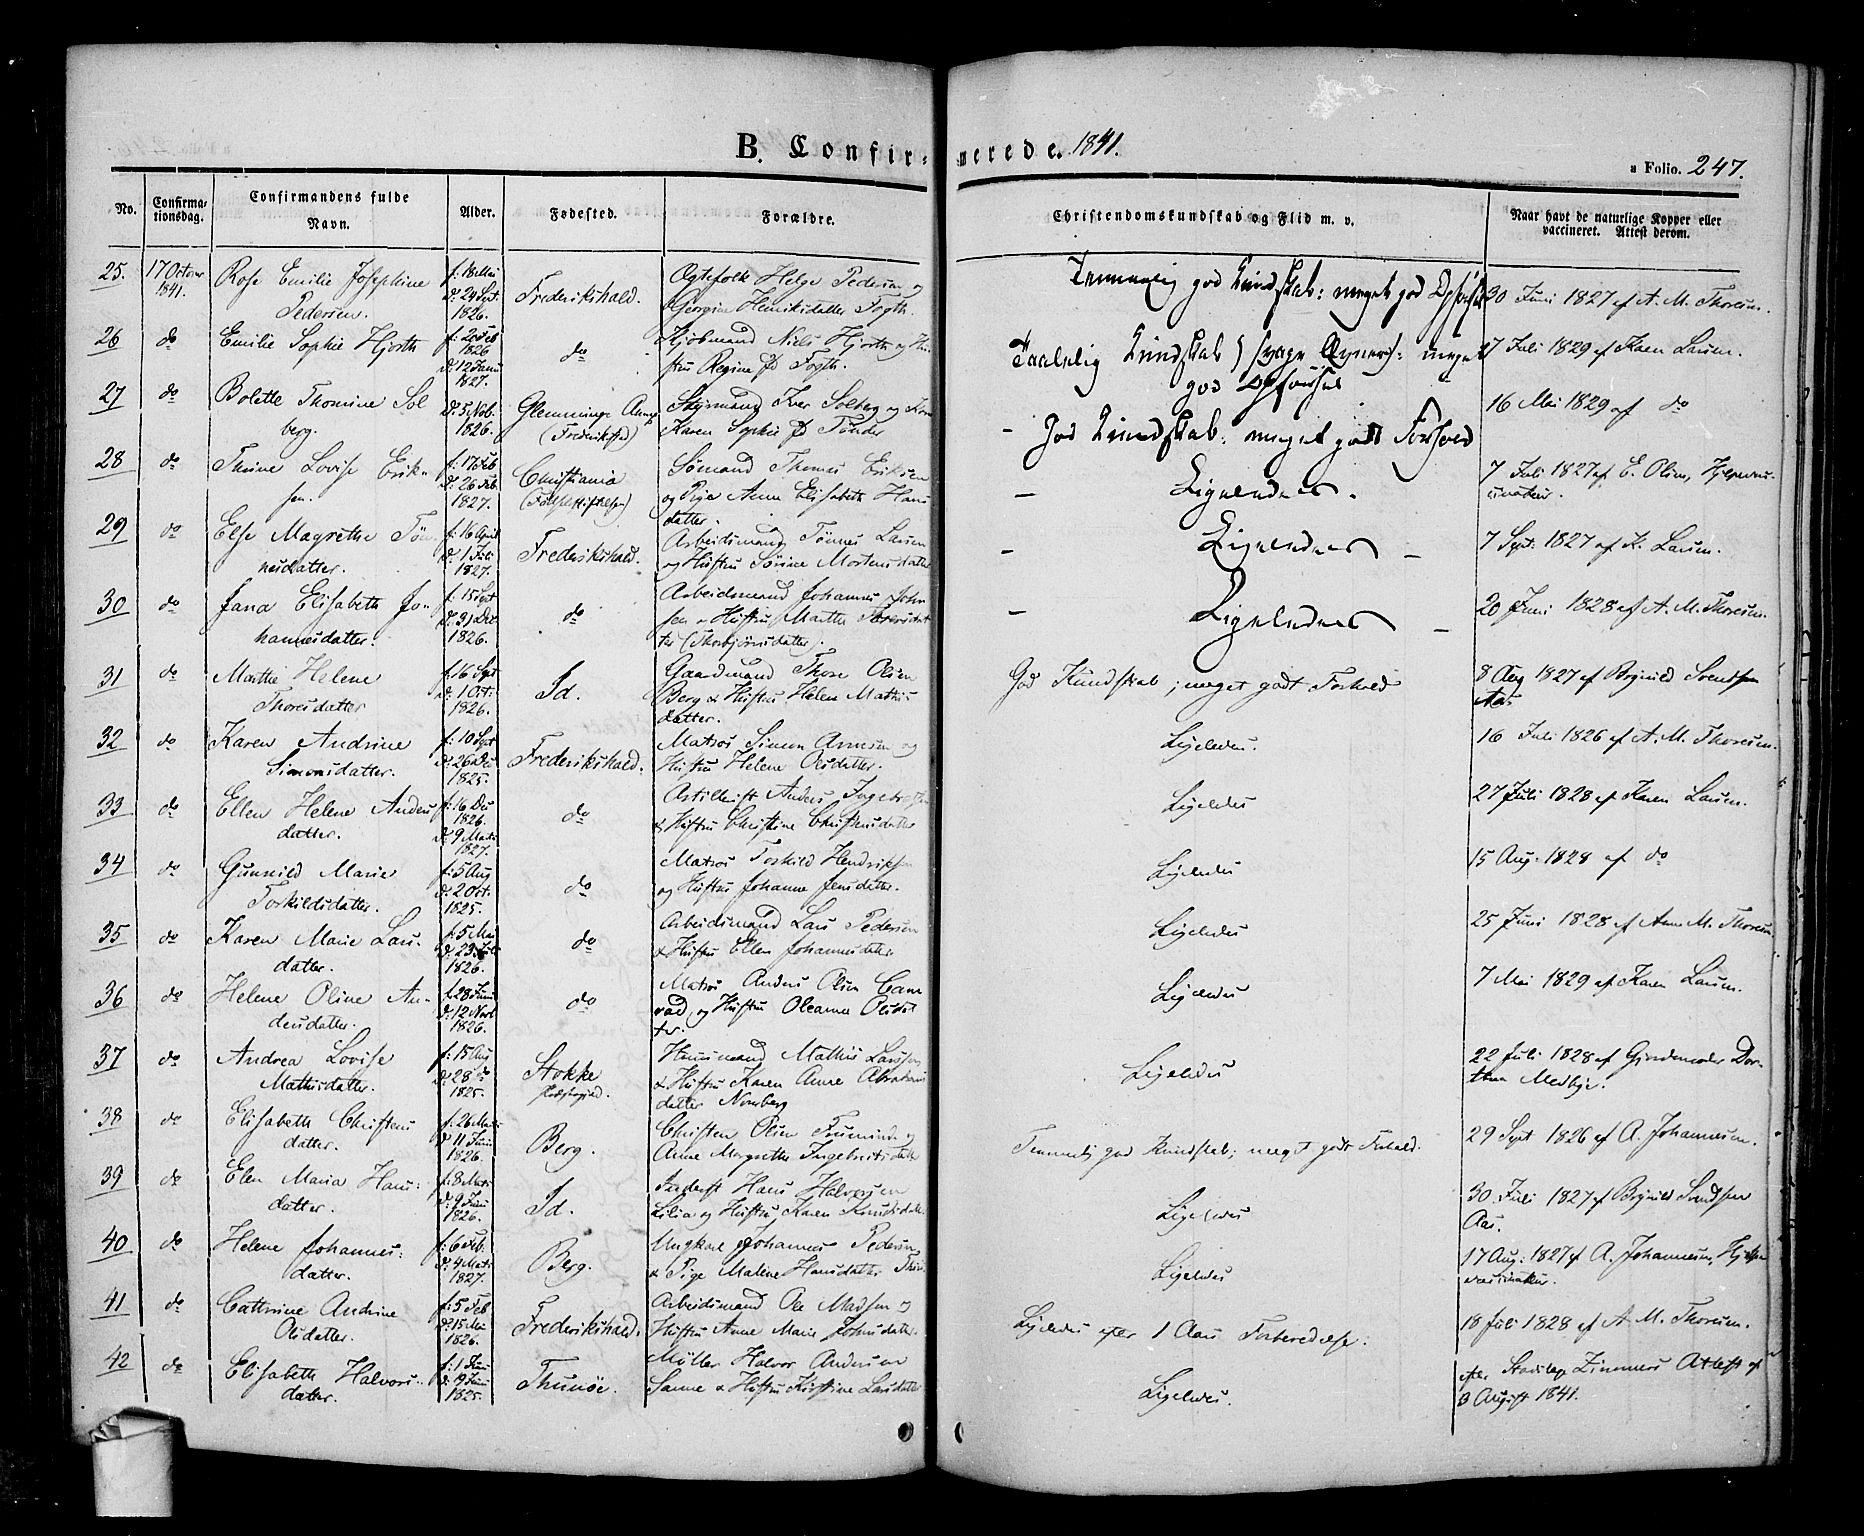 B. Confir=
merede. 1841.
a Folio. 247.
No.
Confirma-
tionsdag.
Confirmandens fulde
Navn.
Alder.
Fødested.
Forældre.
Christendomskundskab og Flid m. v.
Naar havt de naturlige Kopper eller
vaccineret. Attest derom.
25. 17 October Rose Emilie Josephine f: 18 Mai Ægtefolk Helge Pedersen og
1841. Pedersen. d: 24 Sept. 1826. Frederikshald. Georgine Henriksdatter Fogth.
Temmelig god Kundskab: meget god Opførsel
30 Juni 1827 af A. M. Thoresen.
26 do Emilie Sophie Hjorth f: 20 Feb 1826 d: 12 Janu 1827. do
Kjøbmand Niels Hjorth og Hu-
stru Regine fd Fogth.
Taalelig Kundskab (svage Evner): meget
god Opførsel
7 Juli 1829 af Karen Larsen.
27 do Bolette Thomine Sol
berg. d: 5 Nob. 1826. Glemminge Annex
(Frederikstad)
Iver Solberg og Kone
Karen Sophie fd Tønder
God Kundskab: meget godt Forhold
16 Mai 1829 af do
28 do Thrine Lovise Erik-
sen. f: 17 Feb d: 26 Feb. 1827. Christiania
Sømand Thomas Eriksen
og Pige Anne Elisabeth Hans
datter.
Ligeledes.
7 Juli 1827 af E. Olsen,
29 do Else Magrethe Tøn
nesdatter. f: 16 April d: 1 Juli 1827. Frederikshald.
Arbeidsmand Tønnes Larsen
og Hustru Sørine Mortensdatter
Ligeledes
7 Sept. 1827 af K. Larsen.
30 do Jana Elisabeth Jo-
hannesdatter. f: 15 Sept d: 31 Dec 1826. do
Arbeidsmand Johannes John
sen & Hustru Marthe Thoresdat
ter (Thorbjørnsdatter).
Ligeledes
20 Juni 1828 af A. M. Thoresen.
31 do Marthe Helene
Thoresdatter f: 16 Sept d: 1 Oct. 1826. Id.
Gaardmand Thore Olsen
Berg & Hustru Helene Mathis
datter.
God Kundskab; meget godt Forhold
8 Aug 1827 af Brynild Svendsen
Aas
32 do Karen Andrine
Simonsdatter. f: 10 Sept d: 26 Dec 1825. Frederikshald.
Matros Simon Arnesen og
Hustru Helene Olsdatter.
Ligeledes.
16 Juli 1826 af A. M. Thoresen.
33 do Ellen Helene Anders
datter. f: 16 Dec 1826. d: 9 Marts 1827. do
Artillerist Anders
& Hustru Christine Christensdatter
Ligeledes
27 Juli 1828 af Karen Larsen.
34 do Gunnild Marie
Torkildsdatter. f: 5 Aug d: 2 Oct. 1825. do
Matros Torkild Hendriksen
og Hustru Johanne Jensdatter.
Ligeledes
15 Aug. 1828 af do
35 do Karen Marie Lars-
datter. f: 5 Mai d: 23 1826. do
Arbeidsmand Lars Pedersen
& Hustru Ellen Johannesdatter
Ligeledes
25 Juni 1828 af Ane M. Thoresen.
36 do Helene Oline An-
dersdatter. f: 28 Juni d: 12 Novb 1826. do
Matros Anders Olsen Cam
rad, og Hustru Oleanna Olsdat
ter.
Ligeledes
7 Mai 1829 af Karen Larsen.
37 do Andrea Lovise
Mathisdatter. f: 15 Aug d: 28 do 1825. Stokke
Huusmand Mathis Larssen
& Hustru Karen Anne Abrahams
datter Nomberg
Ligeledes
22 Juli 1828 af Gjordemoder Dor-
thea Medbye.
38 do Elisabeth Christens
datter. f: 26 Marts d: 11 Juni 1826. Berg.
Christen Olsen
Anne Margrethe Ingebretsdatter
Temmelig god Kundskab; meget godt Forhold.
29 Sept 1826 af A. Johannesen.
39 do Elen Maria Hans:
datter. f: 8 Marts d: 9 Juni 1826. Id.
Inderst Hans Halvorsen
Lilia og Hustru Karen Knudsdatter
Ligeledes
30 Juli 1827 af Brynild Svendsen
Aas.
40 do Helene Johannes:
datter. f: 6 Feb. d: 4 Marts 1827. Berg.
Ungkarl Johannes Pedersen
& Pige Malene Hansdatter
Ligeledes
17 Aug: 1827 af A. Johannesen,
41 do Cathrine Andrine
Olsdatter. f: 5 Feb d: 15 Mai 1826. Frederikshald.
Arbeidsmand Ole Madsen og
Hustru Anne Marie Johnsdatter.
Ligeledes efter 1 Aars Forberedelse.
18 Juli 1828 af A M. Thoresen.
42 do Elisabeth Halvors-
datter. f: 1 Juni d: 19 Juni 1825. Thunøe.
Møller Halvor Andersen
Sanne & Hustru Kirstine Larsdatter
Ligeledes.
efter Stadslæge Zimmers Attest af
3 August 1841.